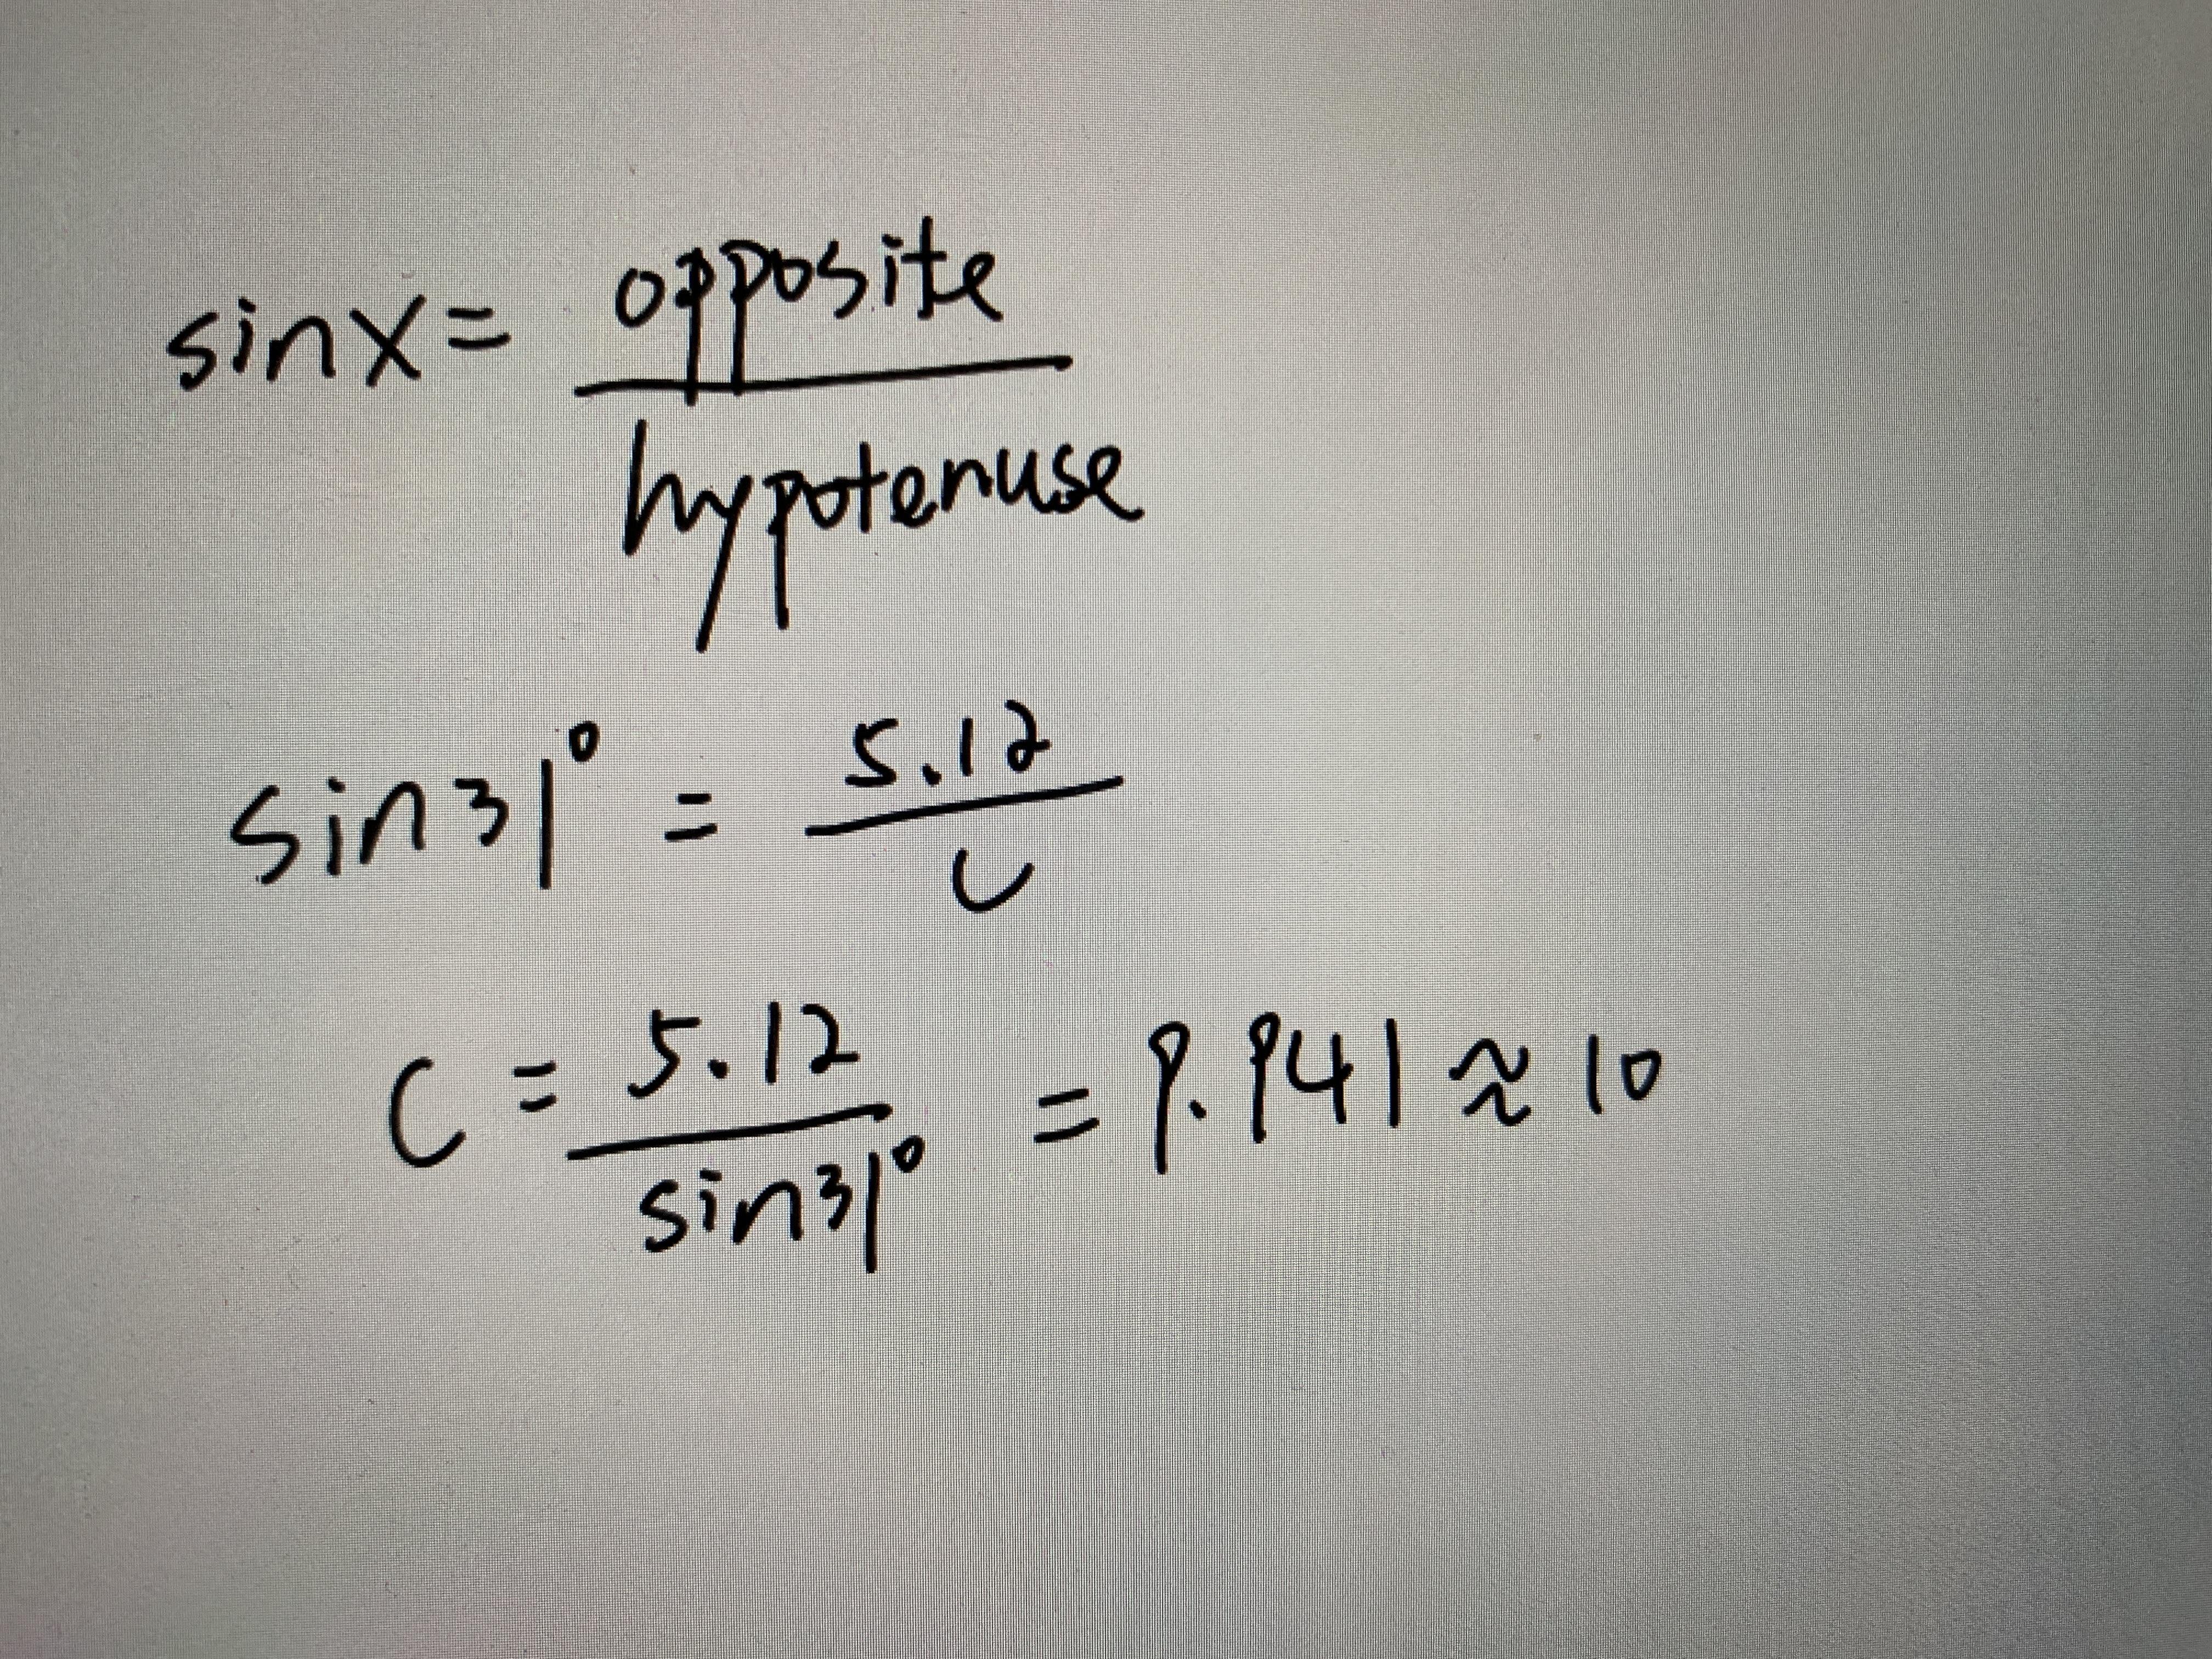 sinx = opposite / hypotenuse
sin31° = 5.12 / C
C = 5.12 / sin31° = 9.941 ≈ 10